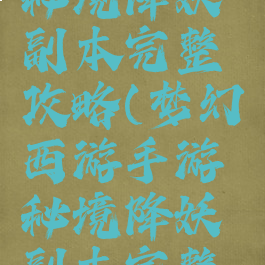 秘境降妖
副本完整
攻略(梦幻
西游手游
秘境降妖
副本完整